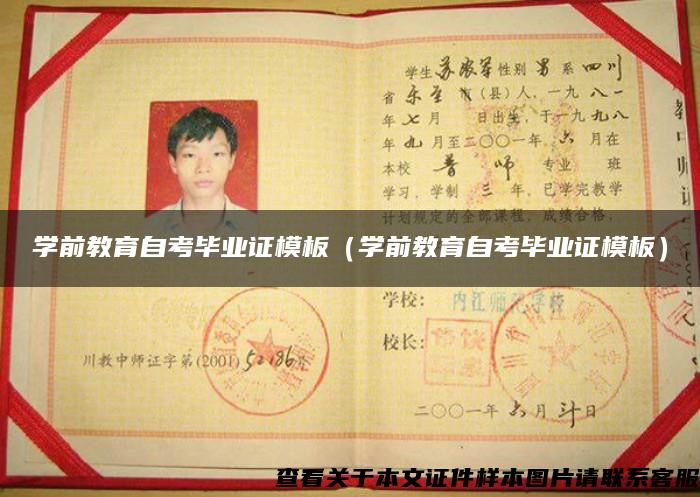 学生 苏发军 性别 男 系 四川
省 乐至 市(县)人,一九 八一
年 七 月 日出生,于一九 九八
年 九 月至二〇〇一年 六 月在
本校 普师 专业 班
学习,学制 三 年,已学完教学
计划规定的全部课程,成绩合格,
学前教育自考毕业证模板（学前教育自考毕业证模板）
学校: 内江师范学校
校长:
川教中师证字第(2001) 52186 号
二〇〇一年 六 月 日
查看关于本文证件样本图片请联系客服